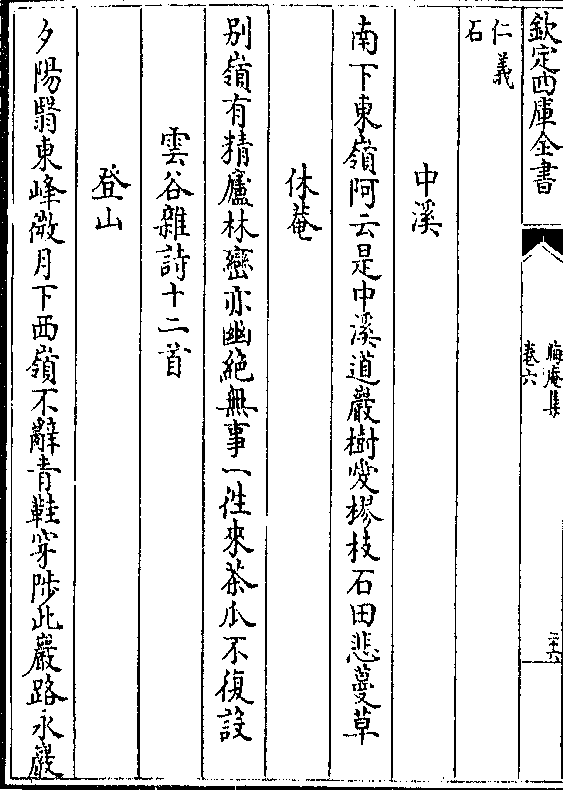 欽定四庫全書
晦庵集
卷六
二十六
仁義
石
中溪
南下東嶺阿云是中溪道巖樹愛樛枝石田悲蔓草
休菴
别嶺有精廬林巒亦幽絶無事一徃來茶瓜不復設
雲谷雜詩十二首
登山
夕陽翳東峰微月下西嶺不辭青鞋穿陟此巖路永巖